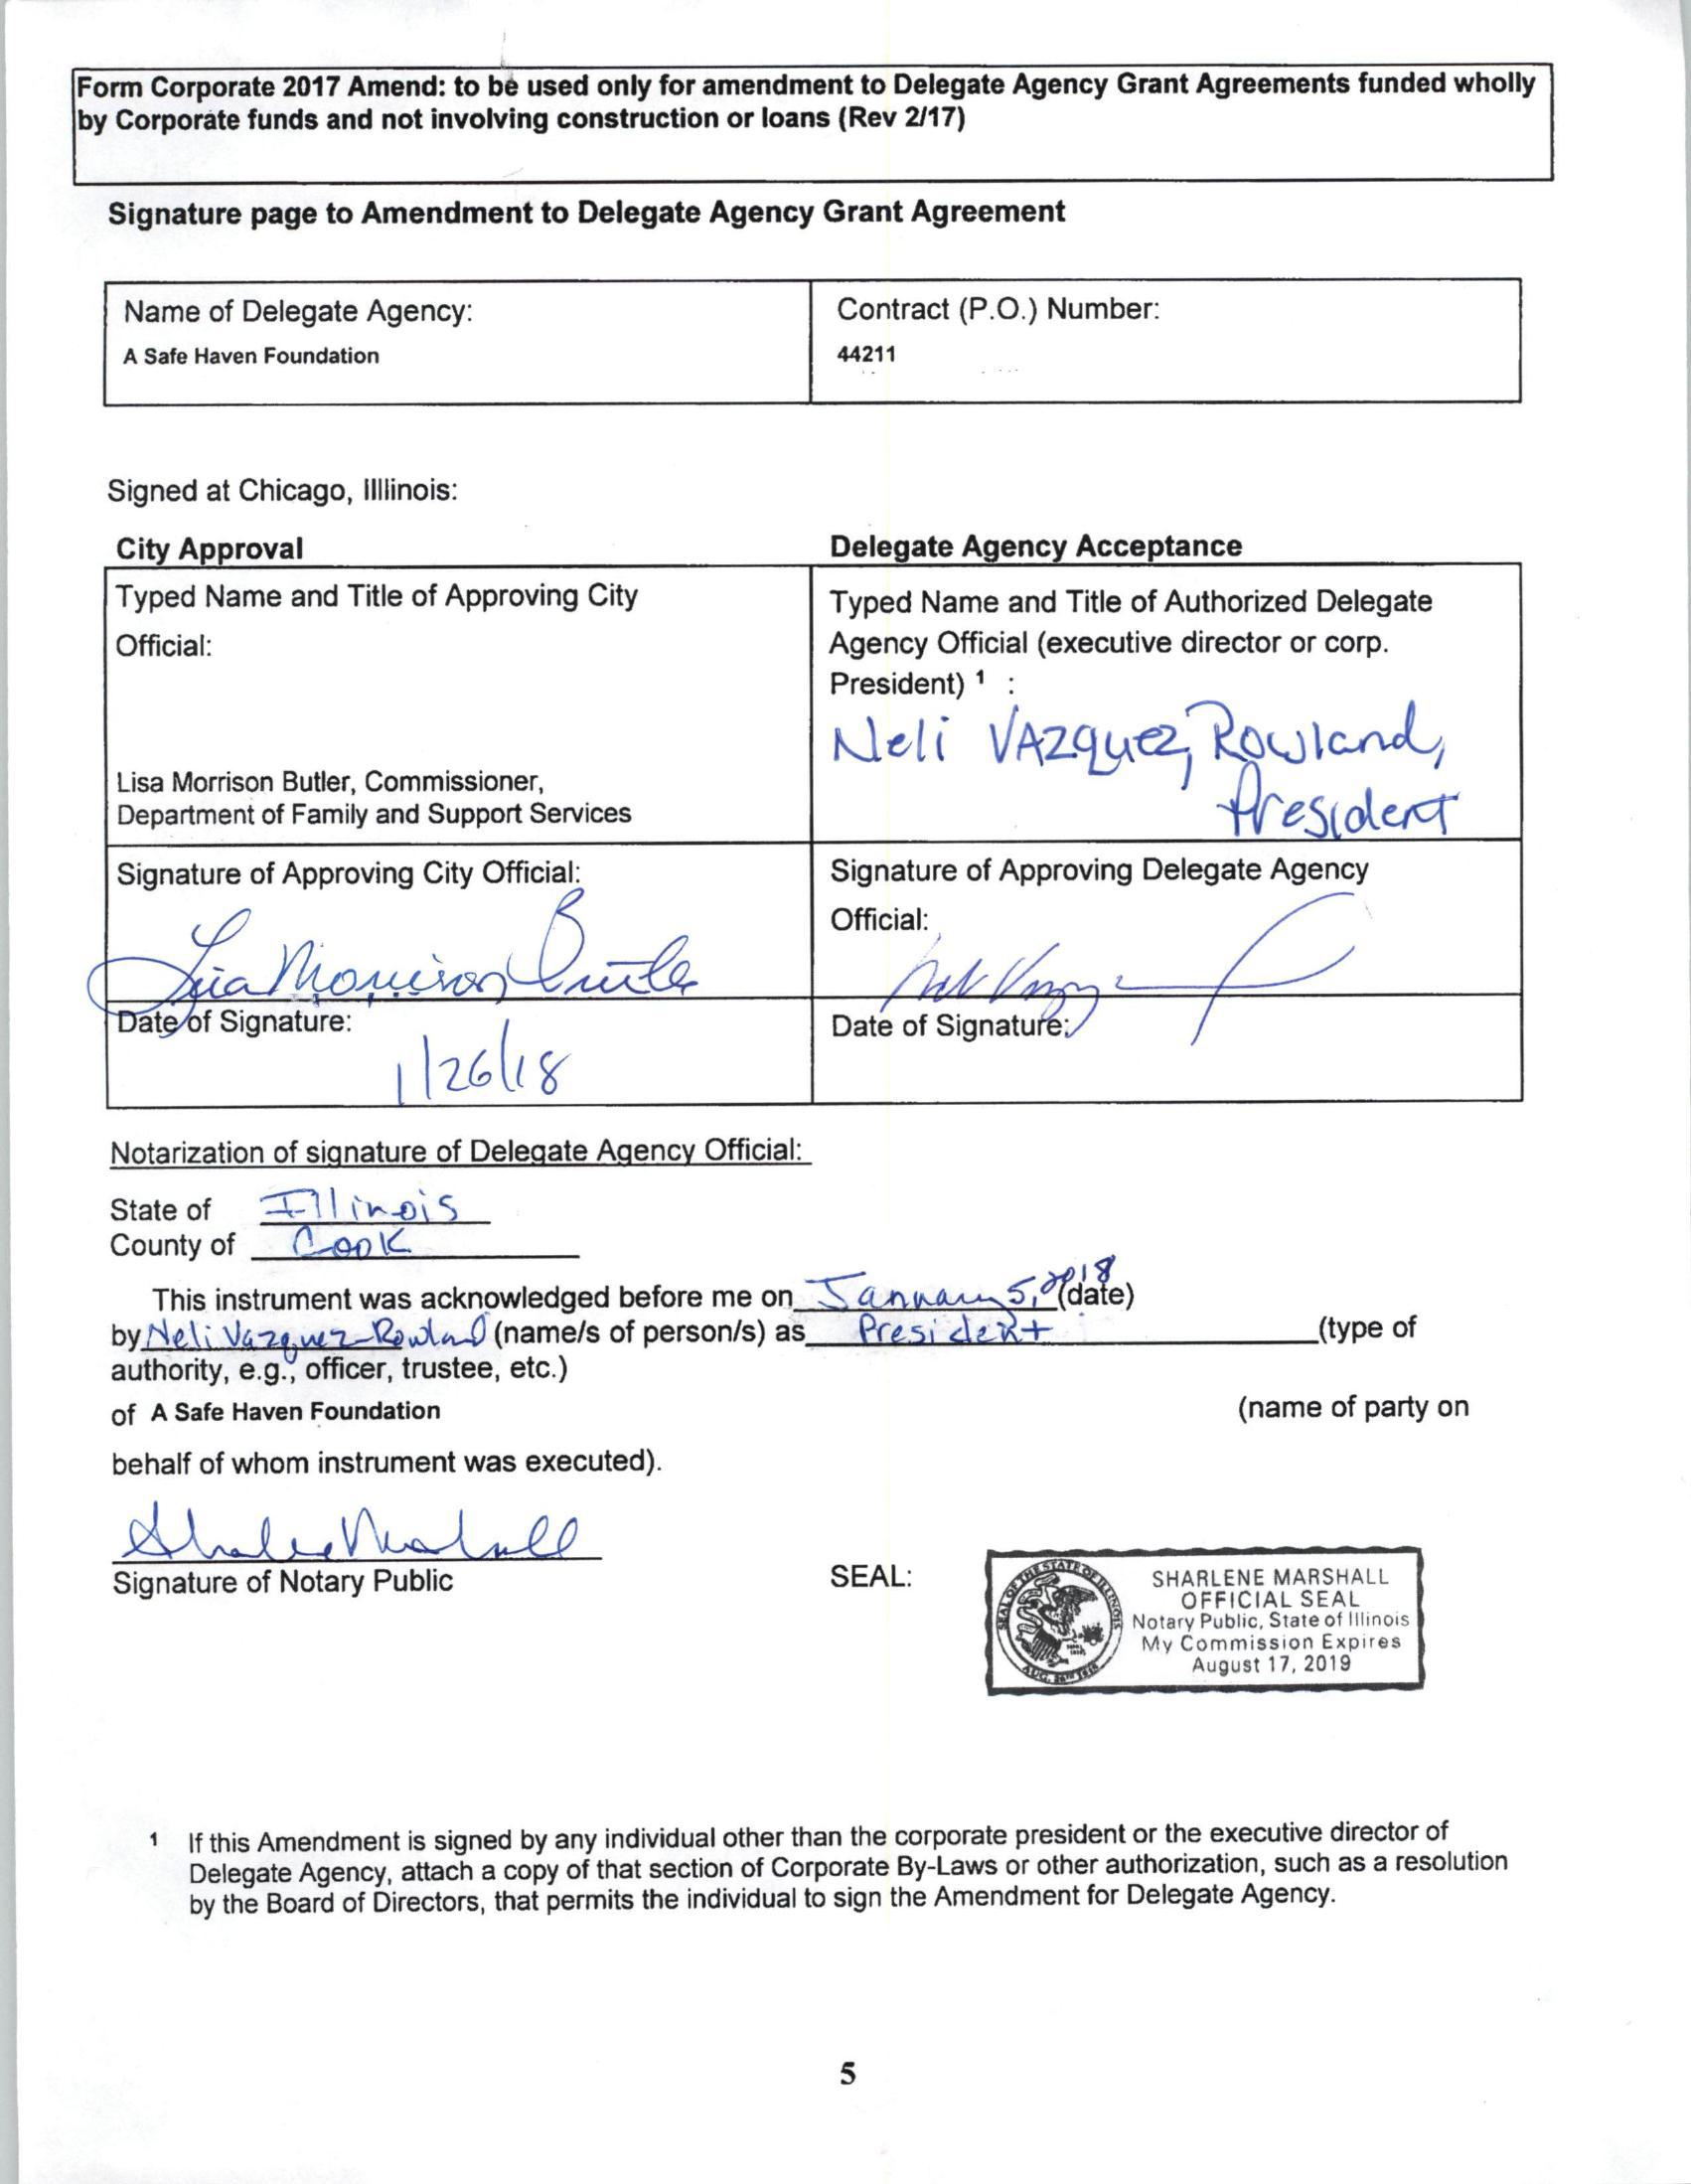 Form Corporate 2017 Amend: to be used only for amendment to Delegate Agency Grant Agreements funded wholly
by Corporate funds and not involving construction or loans (Rev 2/17)
Signature page to Amendment to Delegate Agency Grant Agreement
Name of Delegate Agency:
A Safe Haven Foundation
Contract (P.O.) Number:
44211
Signed at Chicago, Illlinois:
City Approval
Typed Name and Title of Approving City
Official:
Lisa Morrison Butler, Commissioner,
Department of Family and Support Services
Delegate Agency Acceptance
Typed Name and Title of Authorized Delegate
Agency Official (executive director or corp.
President) 1 :
Neli VAzquez, Rowland,
President
Signature of Approving City Official:
Lisa Morrison Butler
Signature of Approving Delegate Agency
Official:
Date of Signature:
1/26/18
Date of Signature:
Notarization of signature of Delegate Agency Official:
State of Illinois
County of Cook
This instrument was acknowledged before me on January 5, 2018 (date)
by Neli Vazquez-Rowland (name/s of person/s) as President (type of
authority, e.g., officer, trustee, etc.)
of A Safe Haven Foundation (name of party on
behalf of whom instrument was executed).
Sharlene Marshall
Signature of Notary Public
SEAL:
SEAL OF THE STATE OF ILLINOIS
AUG. 26TH 1818
SHARLENE MARSHALL
OFFICIAL SEAL
Notary Public, State of Illinois
My Commission Expires
August 17, 2019
1 If this Amendment is signed by any individual other than the corporate president or the executive director of
Delegate Agency, attach a copy of that section of Corporate By-Laws or other authorization, such as a resolution
by the Board of Directors, that permits the individual to sign the Amendment for Delegate Agency.
5